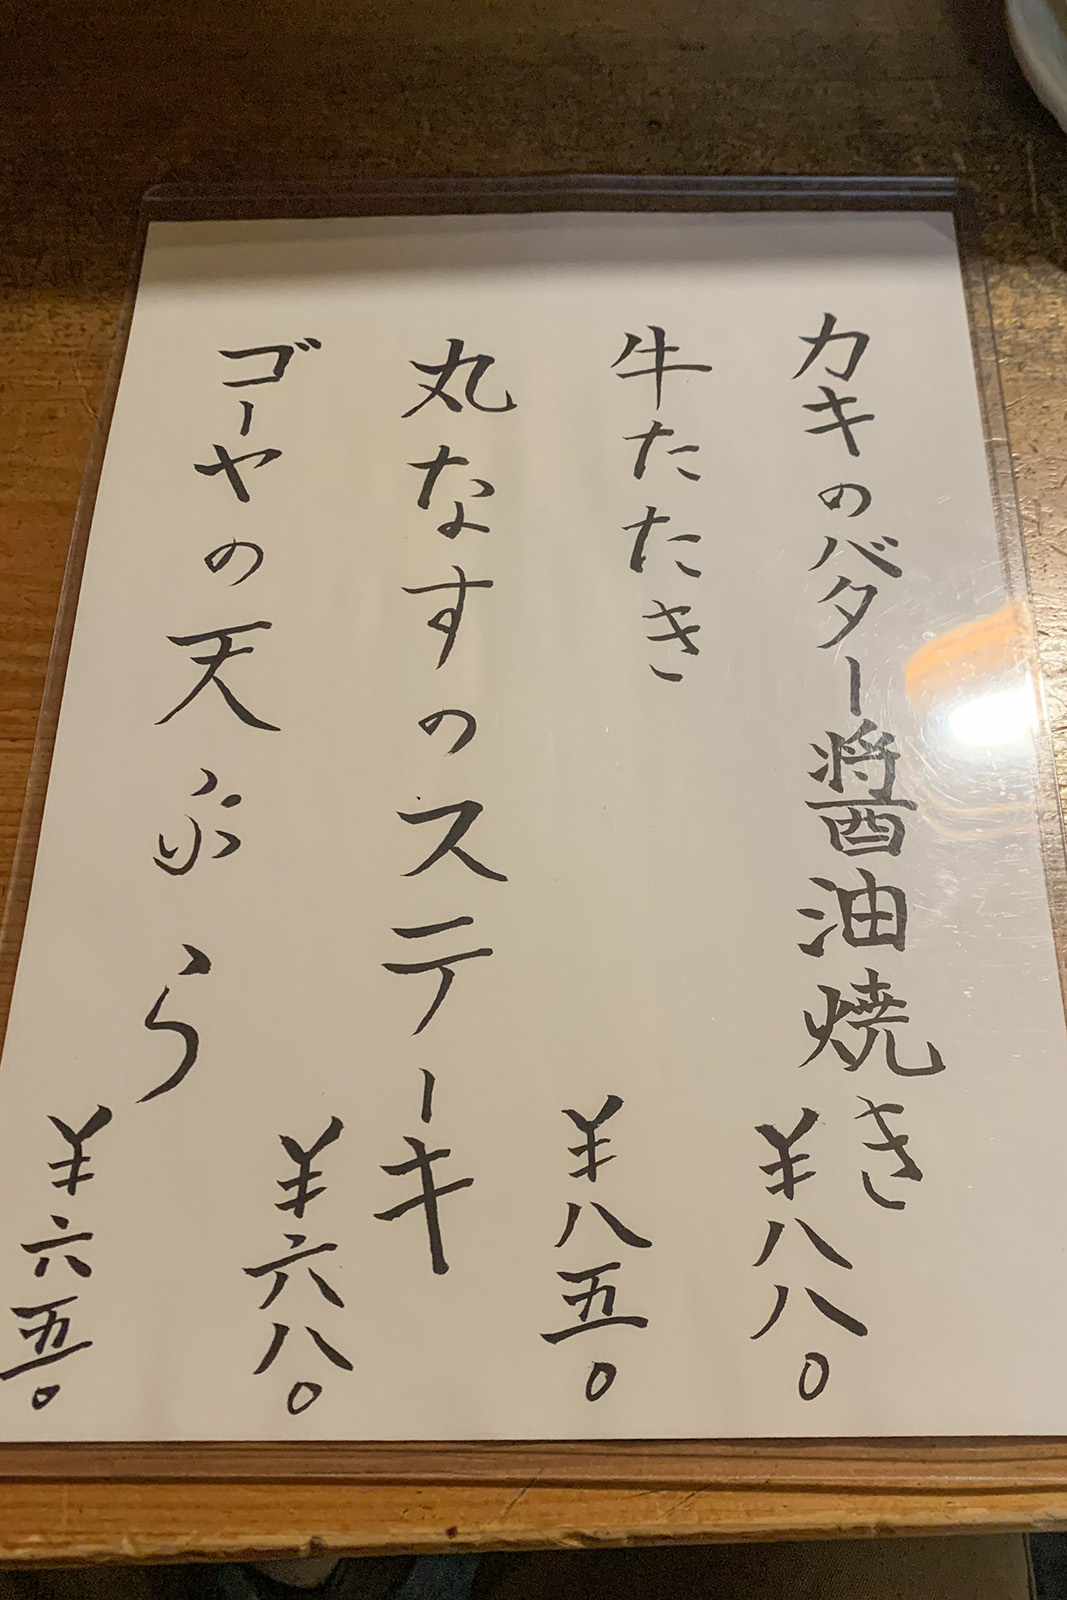 カキのバター醤油焼き
¥八八〇
牛たたき
¥八五〇
丸なすのステーキ
¥六八〇
ゴーヤの天ぷら
¥六五〇